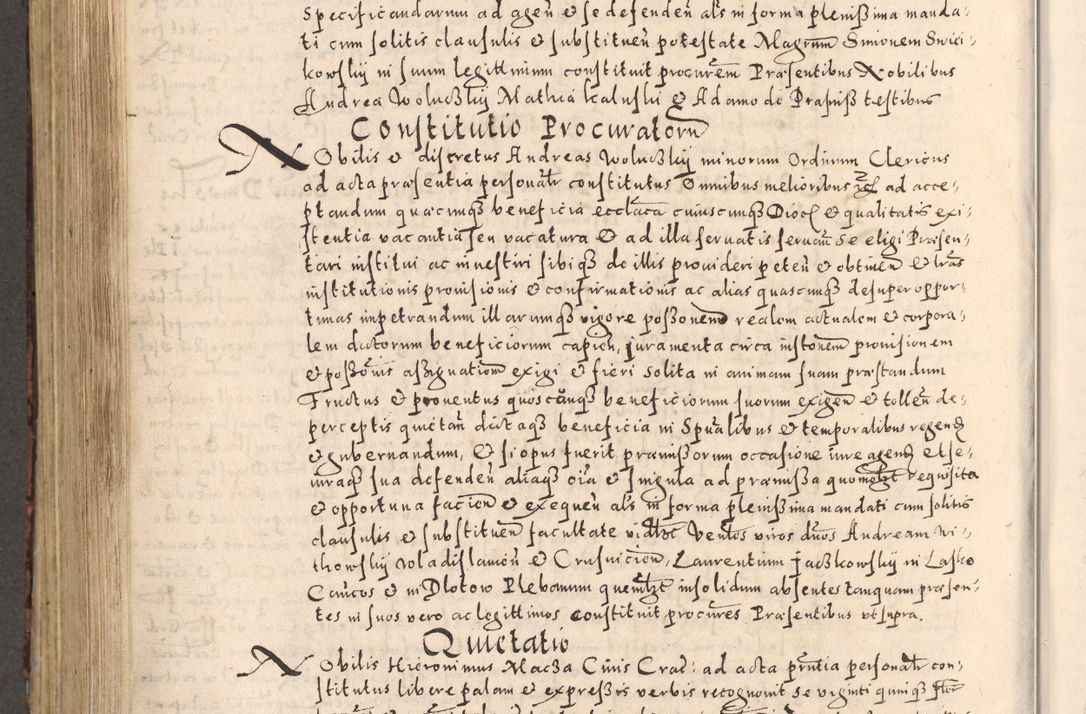 Specificandarum ad agen̄ & se defenden̄ als in forma plenißima manda-
ti cum solitis clausulis & substituen̄ potestate Magrum Simonem Swici-
kowskij in suum legittimum constituit procurēm Præsentibus Nobilibus
Andrea Woluczkij Mathia Kaluskij & Adamo de Prasniß testibus
Constitutio Procuratorū
Nobilis & discretus Andreas Woluczkij minorum Ordinum Clericus
ad acta præsentia personalr constitutus Omnibus melioribus ad acce-
ptandum quæcunqȝ beneficia ecclāca cuiuscunqȝ Dioc & qualitatis exi-
stentia vacantia seu vacatura & ad illa servatis servan̄ se eligi Præsen-
tari institui ac investiri sibiqȝ de illis provideri peten̄ & obtinen̄ & lrās
institutionis provisionis & confirmationis ac alias quascunqȝ desuper oppor-
tunas impetrandum illarumqȝ vigore poßonem realem actualem & corpora-
lem dictorum beneficiorum capien̄, juramenta circa instonēm provisionem
& poßonis aßignationem exigi & fieri solita in animam suam præstandum
Fructus & proventus quoscunqȝ beneficiorum suorum exigen̄ & tollen̄ de-
perceptis quietan̄ dictaqȝ beneficia in Spūalibus & temporalibus regend
& gubernandum, & si opus fuerit præmißorum occasione iure agend et se-
iuraqȝ sua defenden̄ aliaqȝ oīa & singula ad præmißa quomolzt requisita
& opportuna facien̄ & exequen̄ als in forma plenißima mandati cum solitis
clausulis & substituen̄ facultate videlzt Ventos viros duos Andream Wi-
thowskij Wladislamen̄ & Crusvicien̄, Laurentium Jaczkowskij in Lasko
Canicos & in Dlotow Plebanum quemlzt insolidum absentes tanquam præsen-
tes in suos vero ac legittimos constituit procures. Præsentibus ut supra.
Quietatio
Nobilis Hieronimus Maczka Civis Crac: ad acta prntia personalr con-
stitutus libere palam & expreßis verbis recognovit se viginti quinqȝ flor